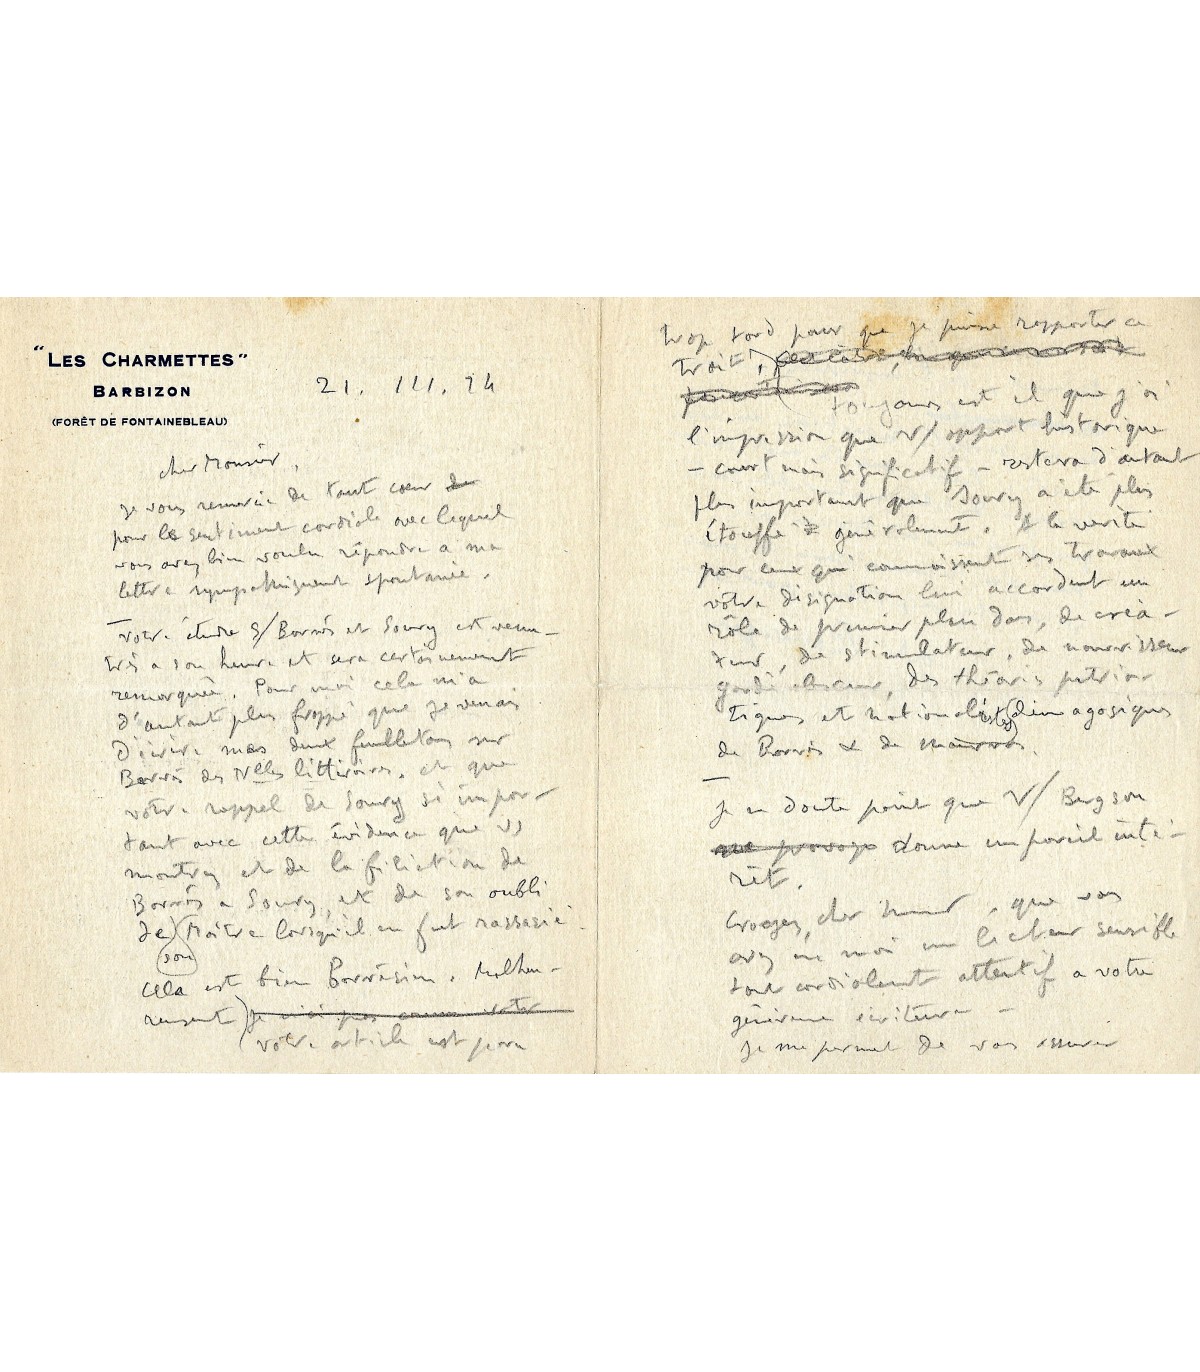 "LES CHARMETTES"
BARBIZON
(FORÊT DE FONTAINEBLEAU)
21. III. 24
cher Monsieur,
je vous remercie de tout cœur de
pour le sentiment cordiale avec lequel
vous avez bien voulu répondre a ma
lettre sympathiquement spontanée.
– votre étude s/ Barrès et Soury est venu-
très a son heure et sera certainement
remarquée. Pour moi cela m'a
d'autant plus frappé que je venais
d'écrire mes deux feuilletons sur
Barrès des Nlles littéraires, et que
votre rappel de Soury si impor-
tant avec cette évidence que vs
montrez et de la filiation de
Barrès a Soury, et de son oubli
de son Maître lorsqu'il en fut rassasié.
cela est bien Barrèsien. Malheu-
reusement je n'ai pas connu votre
votre article est paru
trop tard pour que je puisse rapporter ce
trait!
toujours est il que j'ai
l'impression que v/ apport historique
– court mais significatif – restera d'autant
plus important que Soury a été plus
étouffé généralement. A la verité
pour ceux qui connaissent ses travaux
vôtre désignation lui accordent un
rôle de premier plan dans, de créa-
teur, de stimulateur, de nourrisseur
gardé obscur, des théories patrio-
tiques et nationalistes démagogiques
de Barrès & de Maurras.
– je ne doute point que V/ Bergson
ne provoqe donne un pareil inté-
rêt.
Croyez, cher Monsieur, que vous
avez en moi un lecteur sensible
tout cordialement attentif a votre
généreuse écriture –
je me permet de vous assurer